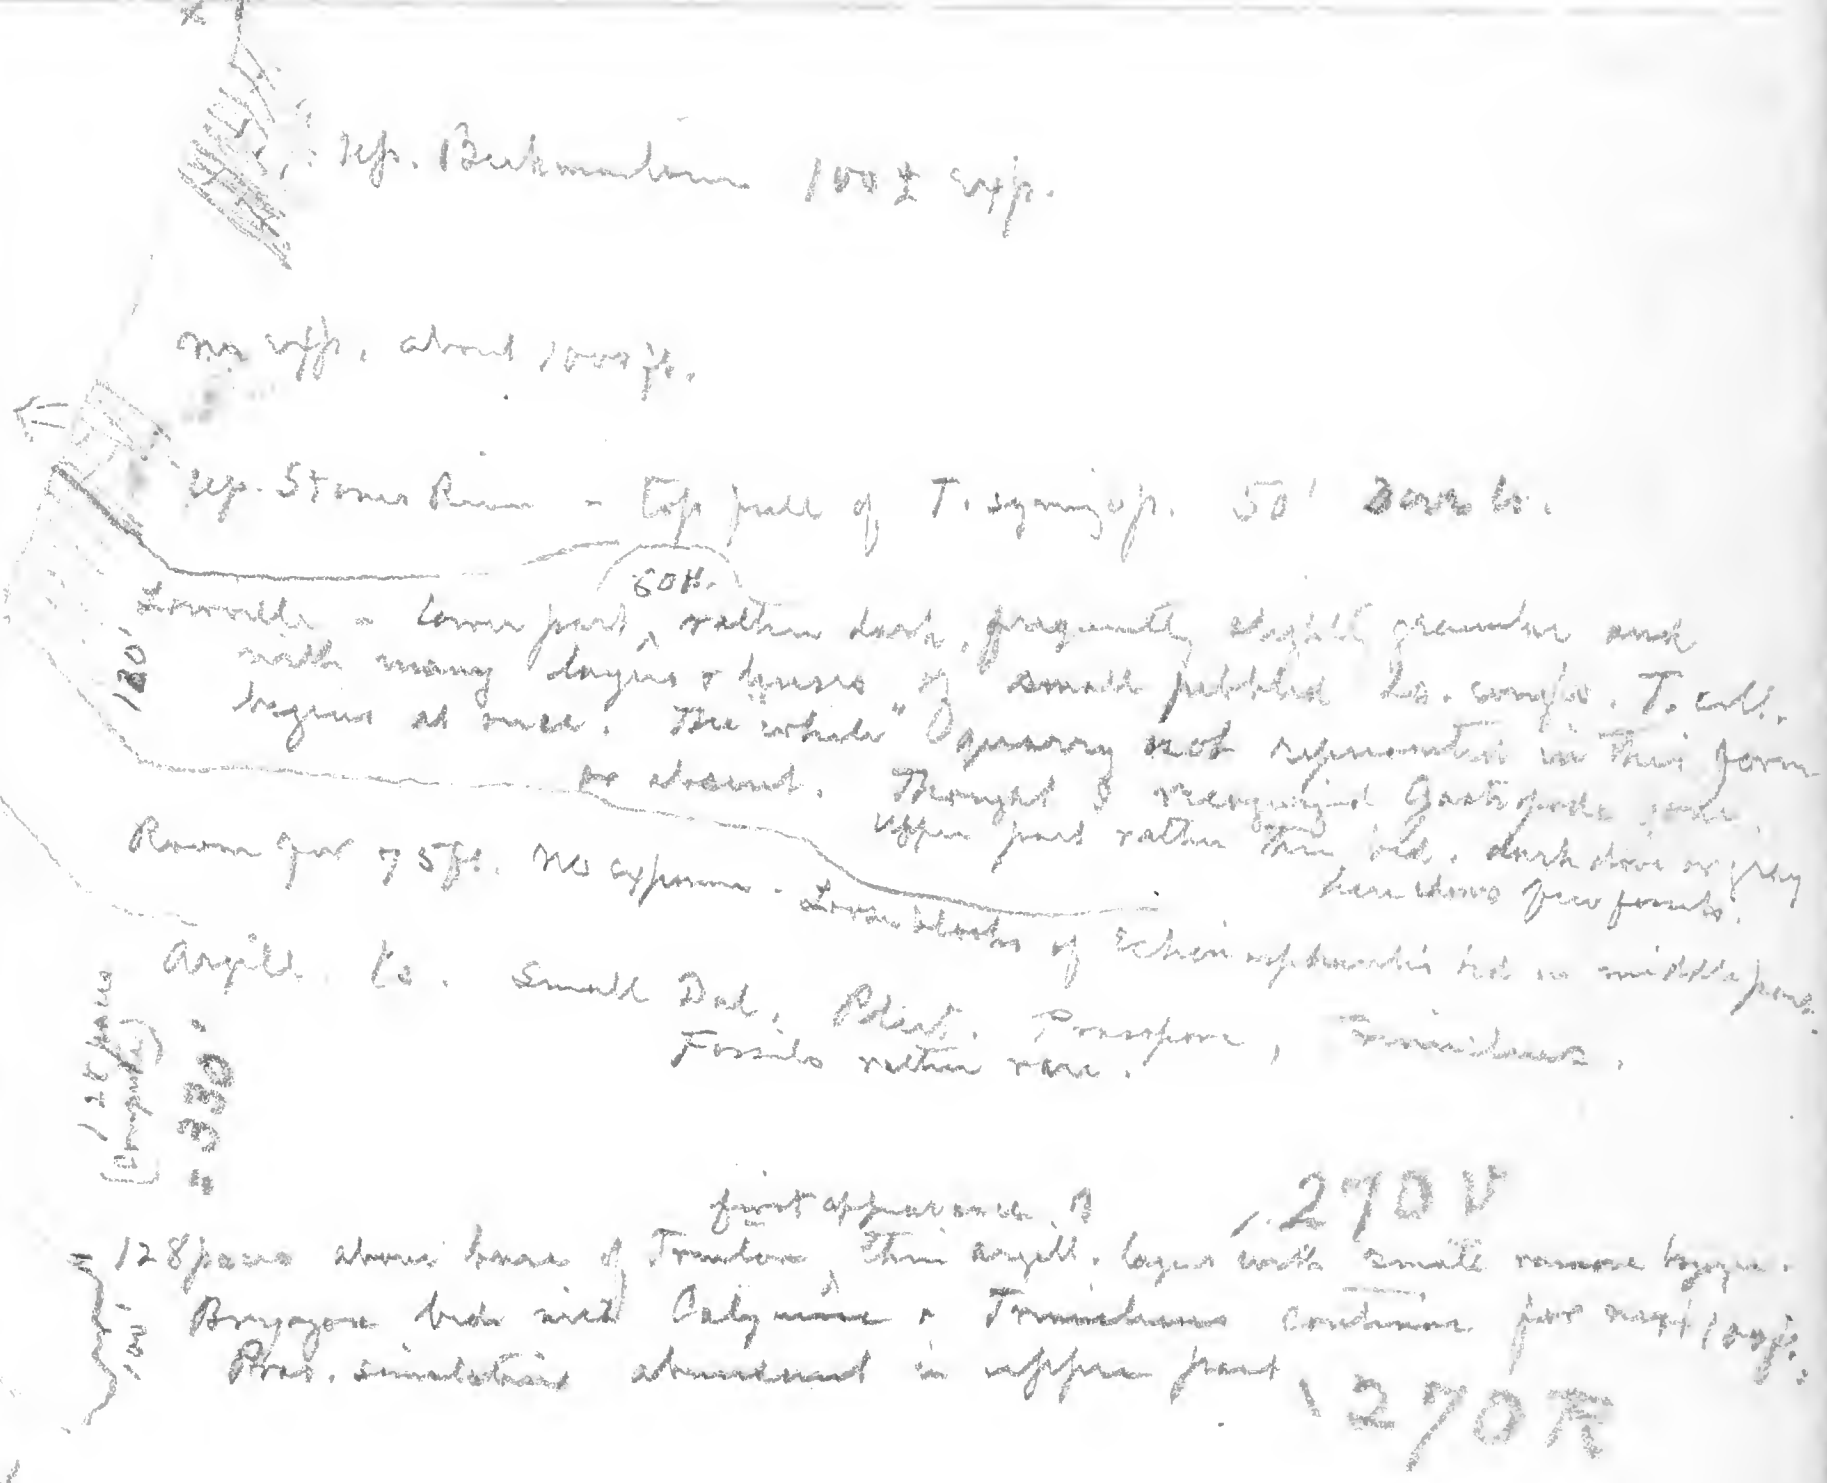 Up. Beekmantown 100 ± exp.
no exp. about 1000 ft.
Up. Stones River - top full of T. syringop. 50' Dove ls.
60 ft.
Lowville - Lower part ^ rather dark, frequently slightly granular and
with many layers & lenses of small pebbled Ls. congl. T. cell.
begins at once. The whole quarry not represented in this form
or absent. Thought I recognized Gastropods
Upper part rather thin bed. dark dove or gray
here shows few fossils.
180'
Room for 75 ft. No exposure. Loose blocks of Echinosphaerites bed in middle part.
Argill. ls. Small Dal, Plect. Prasopora, Trinucleus.
Fossils rather rare.
128 paces
= 330'
first appearance of 270 V
128 paces above base of Trenton ^ thin argill. layers with small ramose bryoz.
Bryozoa beds with Calymene & Trinucleus continue for next 100 ft.
100'
Pras. simulatrix abundant in upper part 270 R